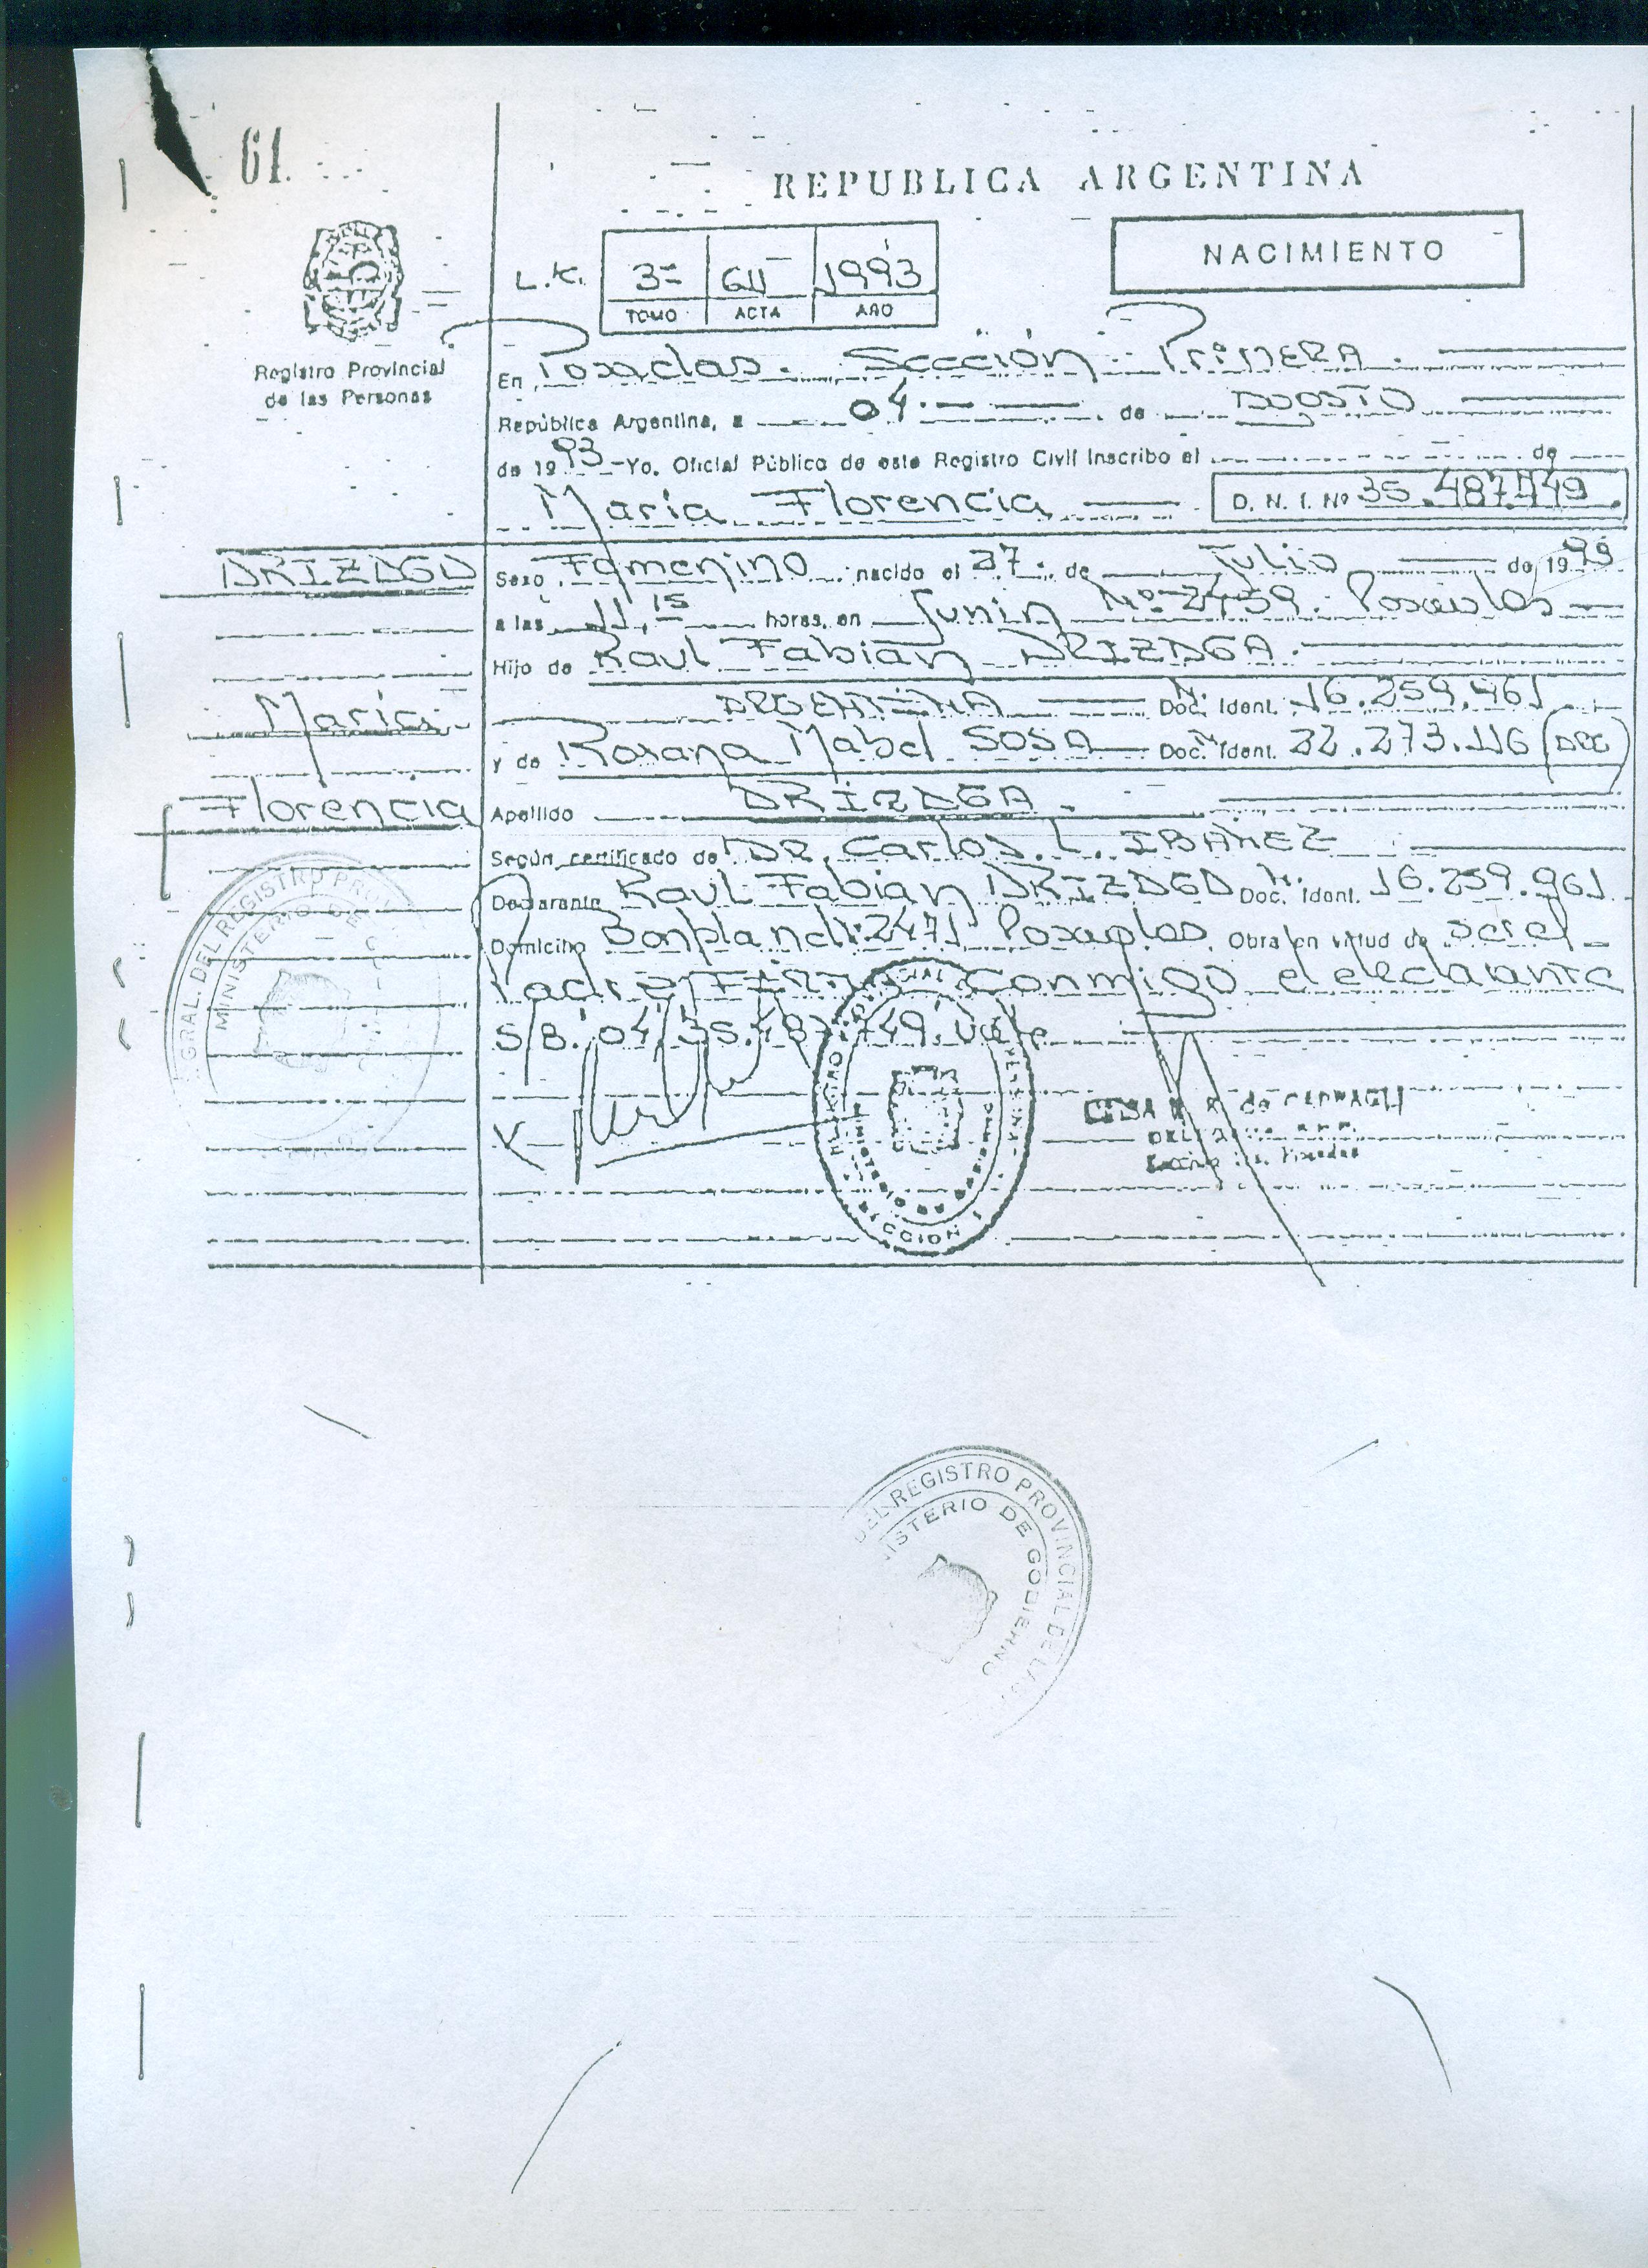 61.
REPUBLICA ARGENTINA
NACIMIENTO
L.K. 3= 611 1993
TOMO ACTA AÑO
Registro Provincial
de las Personas
En Posadas. Sección Primera.
República Argentina, a 04. de AGOSTO
de 1993 -Yo. Oficial Público de este Registro Civil inscribo el de
María Florencia D. N. I. Nº 35.487.449.
ARIZAGA Sexo Femenino nacido el 27. de Julio de 1993
a las 11,15 horas, en Junin Nº 2459. Posadas
Hijo de Raul Fabian ARIZAGA.
María ARGENTINA Doc. Ident. Nº 16.259.961
y de Rosana Mabel SOSA Doc. Ident. Nº 22.273.116 (ARG)
Florencia Apellido ARIZAGA.
Según certificado de DR. Carlos L. IBAÑEZ
Declarante Raul Fabian ARIZAGA Doc. Ident. Nº 16.259.961
Domicilio Bonpland:2471 Posadas. Obra en virtud de ser el
Padre FIRMA Conmigo el declarante
S/B.'04/35.487.449. Vale
de
Sección 1ra. Posadas
GRAL. DEL REGISTRO PROV
MINISTERIO DE
SECCION 1
DEL REGISTRO PROVINCIAL DE LAS
ISTERIO DE GOBIERNO